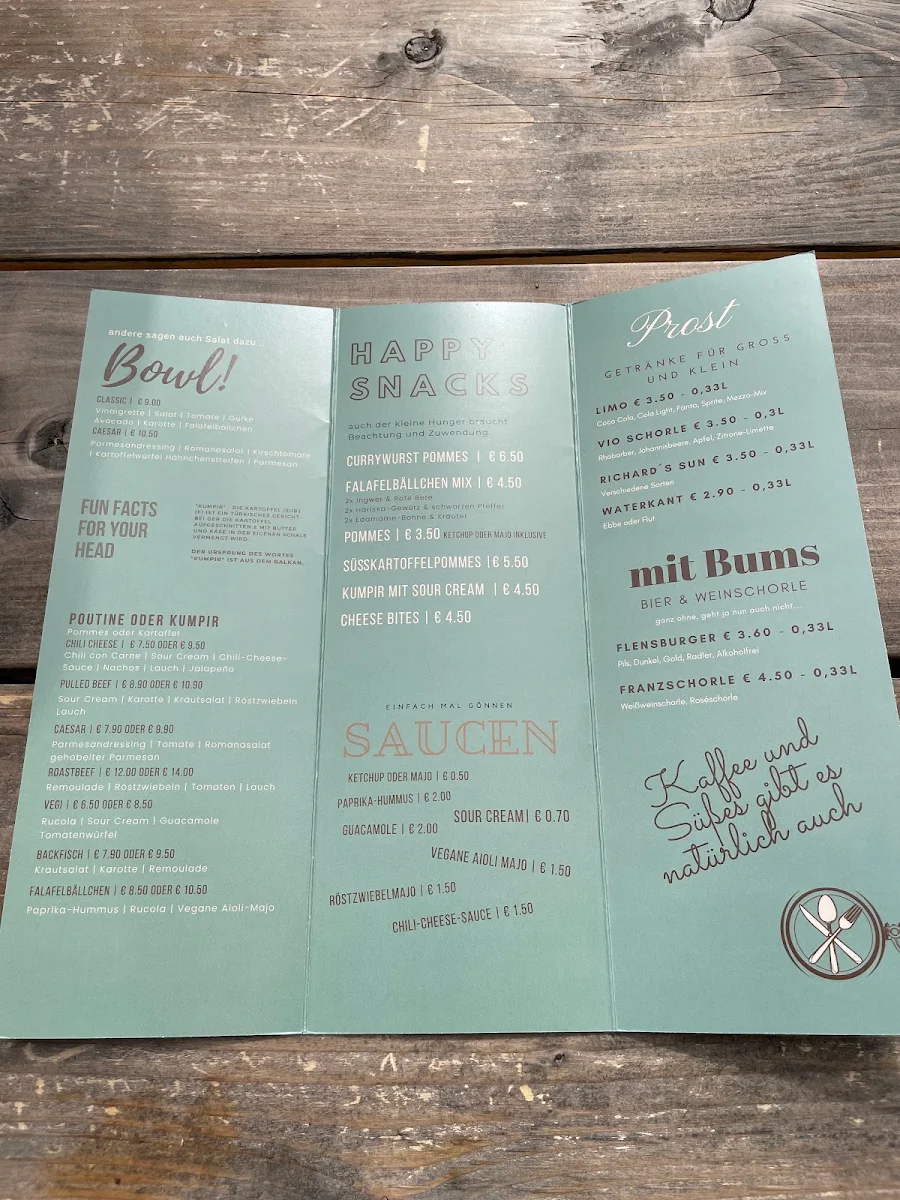 andere sagen auch Salat dazu...
Bowl!
CLASSIC | € 9.00
Vinaigrette | Salat | Tomate | Gurke
Avocado | Karotte | Falafelbällchen
CAESAR | € 10.50
Parmesandressing | Romanasalat | Kirschtomate
| Kartoffelwürfel Hähnchenstreifen | Parmesan
FUN FACTS
FOR YOUR
HEAD
"KUMPIR" - DIE KARTOFFEL (SUB)
(F) IST EIN TÜRKISCHES GERICHT
BEI DER DIE KARTOFFEL
AUFGESCHNITTEN & MIT BUTTER
UND KÄSE IN DER EIGENEN SCHALE
VERMENGT WIRD.
DER URSPRUNG DES WORTES
"KUMPIR" IST AUS DEM BALKAN.
POUTINE ODER KUMPIR
Pommes oder Kartoffel
CHILI CHEESE | € 7.50 ODER € 9.50
Chili con Carne | Sour Cream | Chili-Cheese-
Sauce | Nachos | Lauch | Jalapeño
PULLED BEEF | € 8.90 ODER € 10.90
Sour Cream | Karotte | Krautsalat | Röstzwiebeln
Lauch
CAESAR | € 7.90 ODER € 9.90
Parmesandressing | Tomate | Romanasalat
gehobelter Parmesan
ROASTBEEF | € 12.00 ODER € 14.00
Remoulade | Röstzwiebeln | Tomaten | Lauch
VEGI | € 6.50 ODER € 8.50
Rucola | Sour Cream | Guacamole
Tomatenwürfel
BACKFISCH | € 7.90 ODER € 9.50
Krautsalat | Karotte | Remoulade
FALAFELBÄLLCHEN | € 8.50 ODER € 10.50
Paprika-Hummus | Rucola | Vegane Aioli-Majo
HAPPY
SNACKS
auch der kleine Hunger braucht
Beachtung und Zuwendung.
CURRYWURST POMMES | € 6.50
FALAFELBÄLLCHEN MIX | € 4.50
2x Ingwer & Rote Bete
2x Harissa-Gewürz & schwarzen Pfeffer
2x Edamame-Bohne & Kräuter
POMMES | € 3.50 KETCHUP ODER MAJO INKLUSIVE
SÜSSKARTOFFELPOMMES | € 5.50
KUMPIR MIT SOUR CREAM | € 4.50
CHEESE BITES | € 4.50
EINFACH MAL GÖNNEN
SAUCEN
KETCHUP ODER MAJO | € 0.50
PAPRIKA-HUMMUS | € 2.00
SOUR CREAM | € 0.70
GUACAMOLE | € 2.00
VEGANE AIOLI MAJO | € 1.50
RÖSTZWIEBELMAJO | € 1.50
CHILI-CHEESE-SAUCE | € 1.50
Prost
GETRÄNKE FÜR GROSS
UND KLEIN
LIMO € 3.50 - 0,33L
Coca Cola, Cola Light, Fanta, Sprite, Mezzo-Mix
VIO SCHORLE € 3.50 - 0,3L
Rhabarber, Johannisbeere, Apfel, Zitrone-Limette
RICHARD´S SUN € 3.50 - 0,33L
Verschiedene Sorten
WATERKANT € 2.90 - 0,33L
Ebbe oder Flut
mit Bums
BIER & WEINSCHORLE
ganz ohne, geht ja nun auch nicht....
FLENSBURGER € 3.60 - 0,33L
Pils, Dunkel, Gold, Radler, Alkoholfrei
FRANZSCHORLE € 4.50 - 0,33L
Weißweinschorle, Roséschorle
Kaffee und
Süßes gibt es
natürlich auch